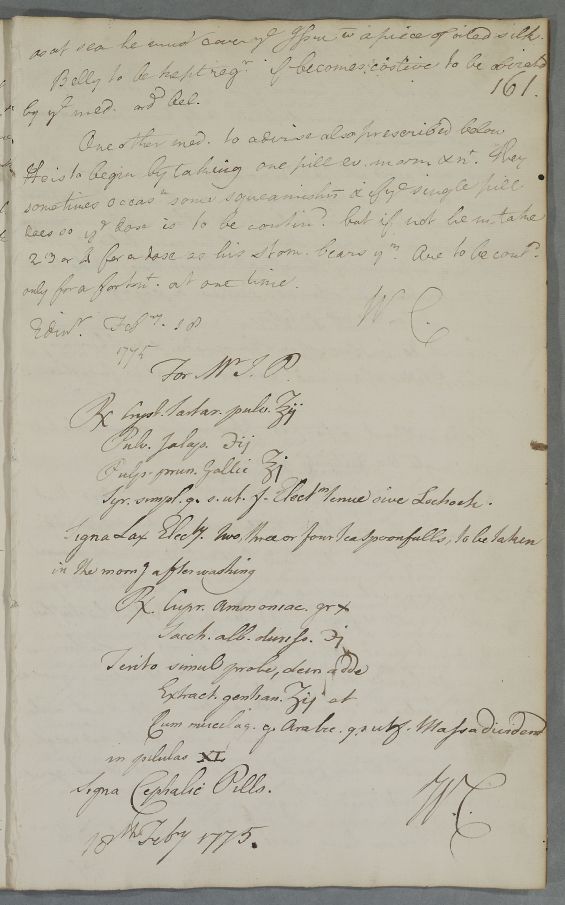 as at sea he must cover yᵉ Issue wᵗ a piece of oiled silk.
Belly to be kept regʳ if becomes costive to be obviated
161.
by yᵉ med. adᵈ bel.
One other med. to advise also prescribed below
He is to begin by taking one pill ev. morn & nᵗ. They
sometimes occasⁿ some squeamishⁿ & if yᵉ single pill
does so yᵗ dose is to be continᵈ. but if not he m. take
2 3 or 4 for a dose as his stom. bears yᵐ. Are to be contᵈ.
only for a fortnᵗ. at one time.
W C.
Edinʳ. Febʸ. 18
1775
For Mʳ J. P.
℞ Cryst. Tartar. pulv. ℥ij
Pulv. Jalap. ʒij
Pulp. prun. Gallic ℥j
Syr. simpl. q. s. ut. f. Electᵐ tenue sive Lochoch.
Signa Lax Electʸ. two, three or four teaspoonfulls, to be taken
in the morng after washing
℞ Cupr. Ammoniac. gr x
Sacch. alb. duriss. ʒj
Terito simul probe, dein adde
Extract. gentian. ʒij et
Cum mucilag. g. Arabic. q. s ut f. Massa dividend
in pilulas XL
Signa Cephalic Pills.
W. C.
18ᵗʰ Feby 1775.